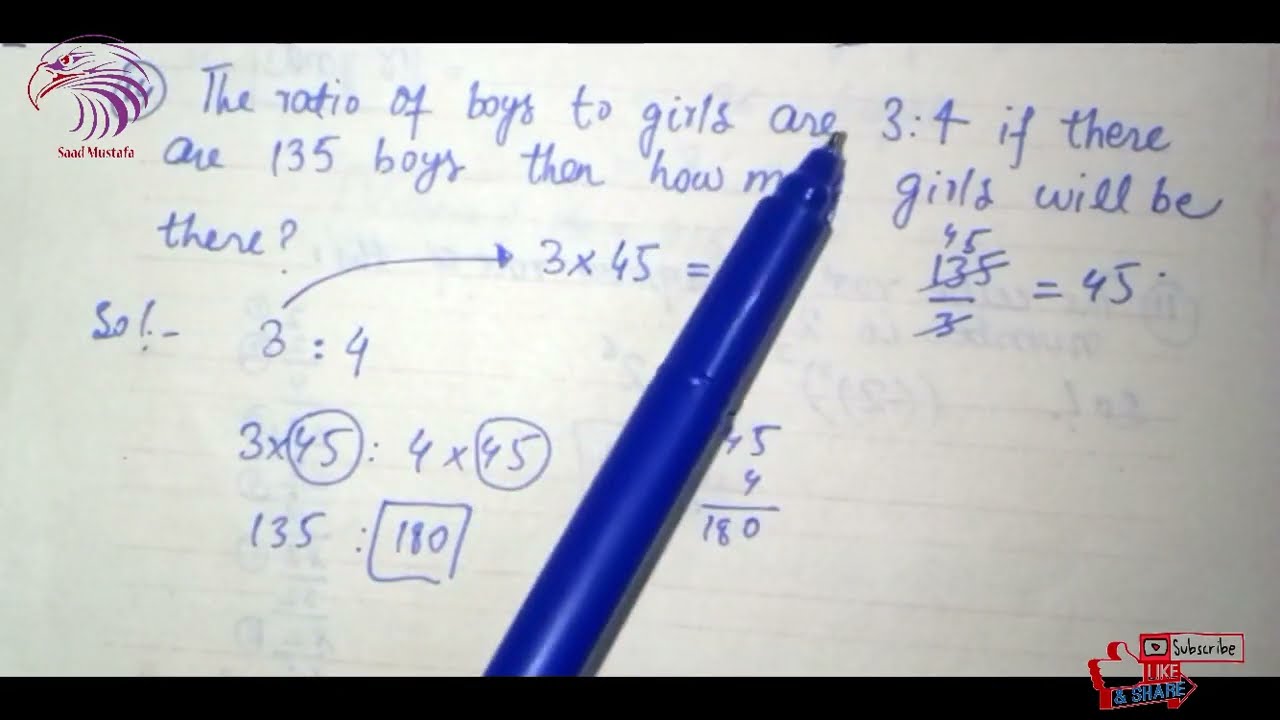 Saad Mustafa
The ratio of boys to girls are 3:4 if there
are 135 boys then how girls will be
there?
3 × 45 =
45
135
3
= 45
Sol.-
3 : 4
3×45 : 4 × 45
135 : 180
45
4
180
Subscribe
LIKE
& SHARE